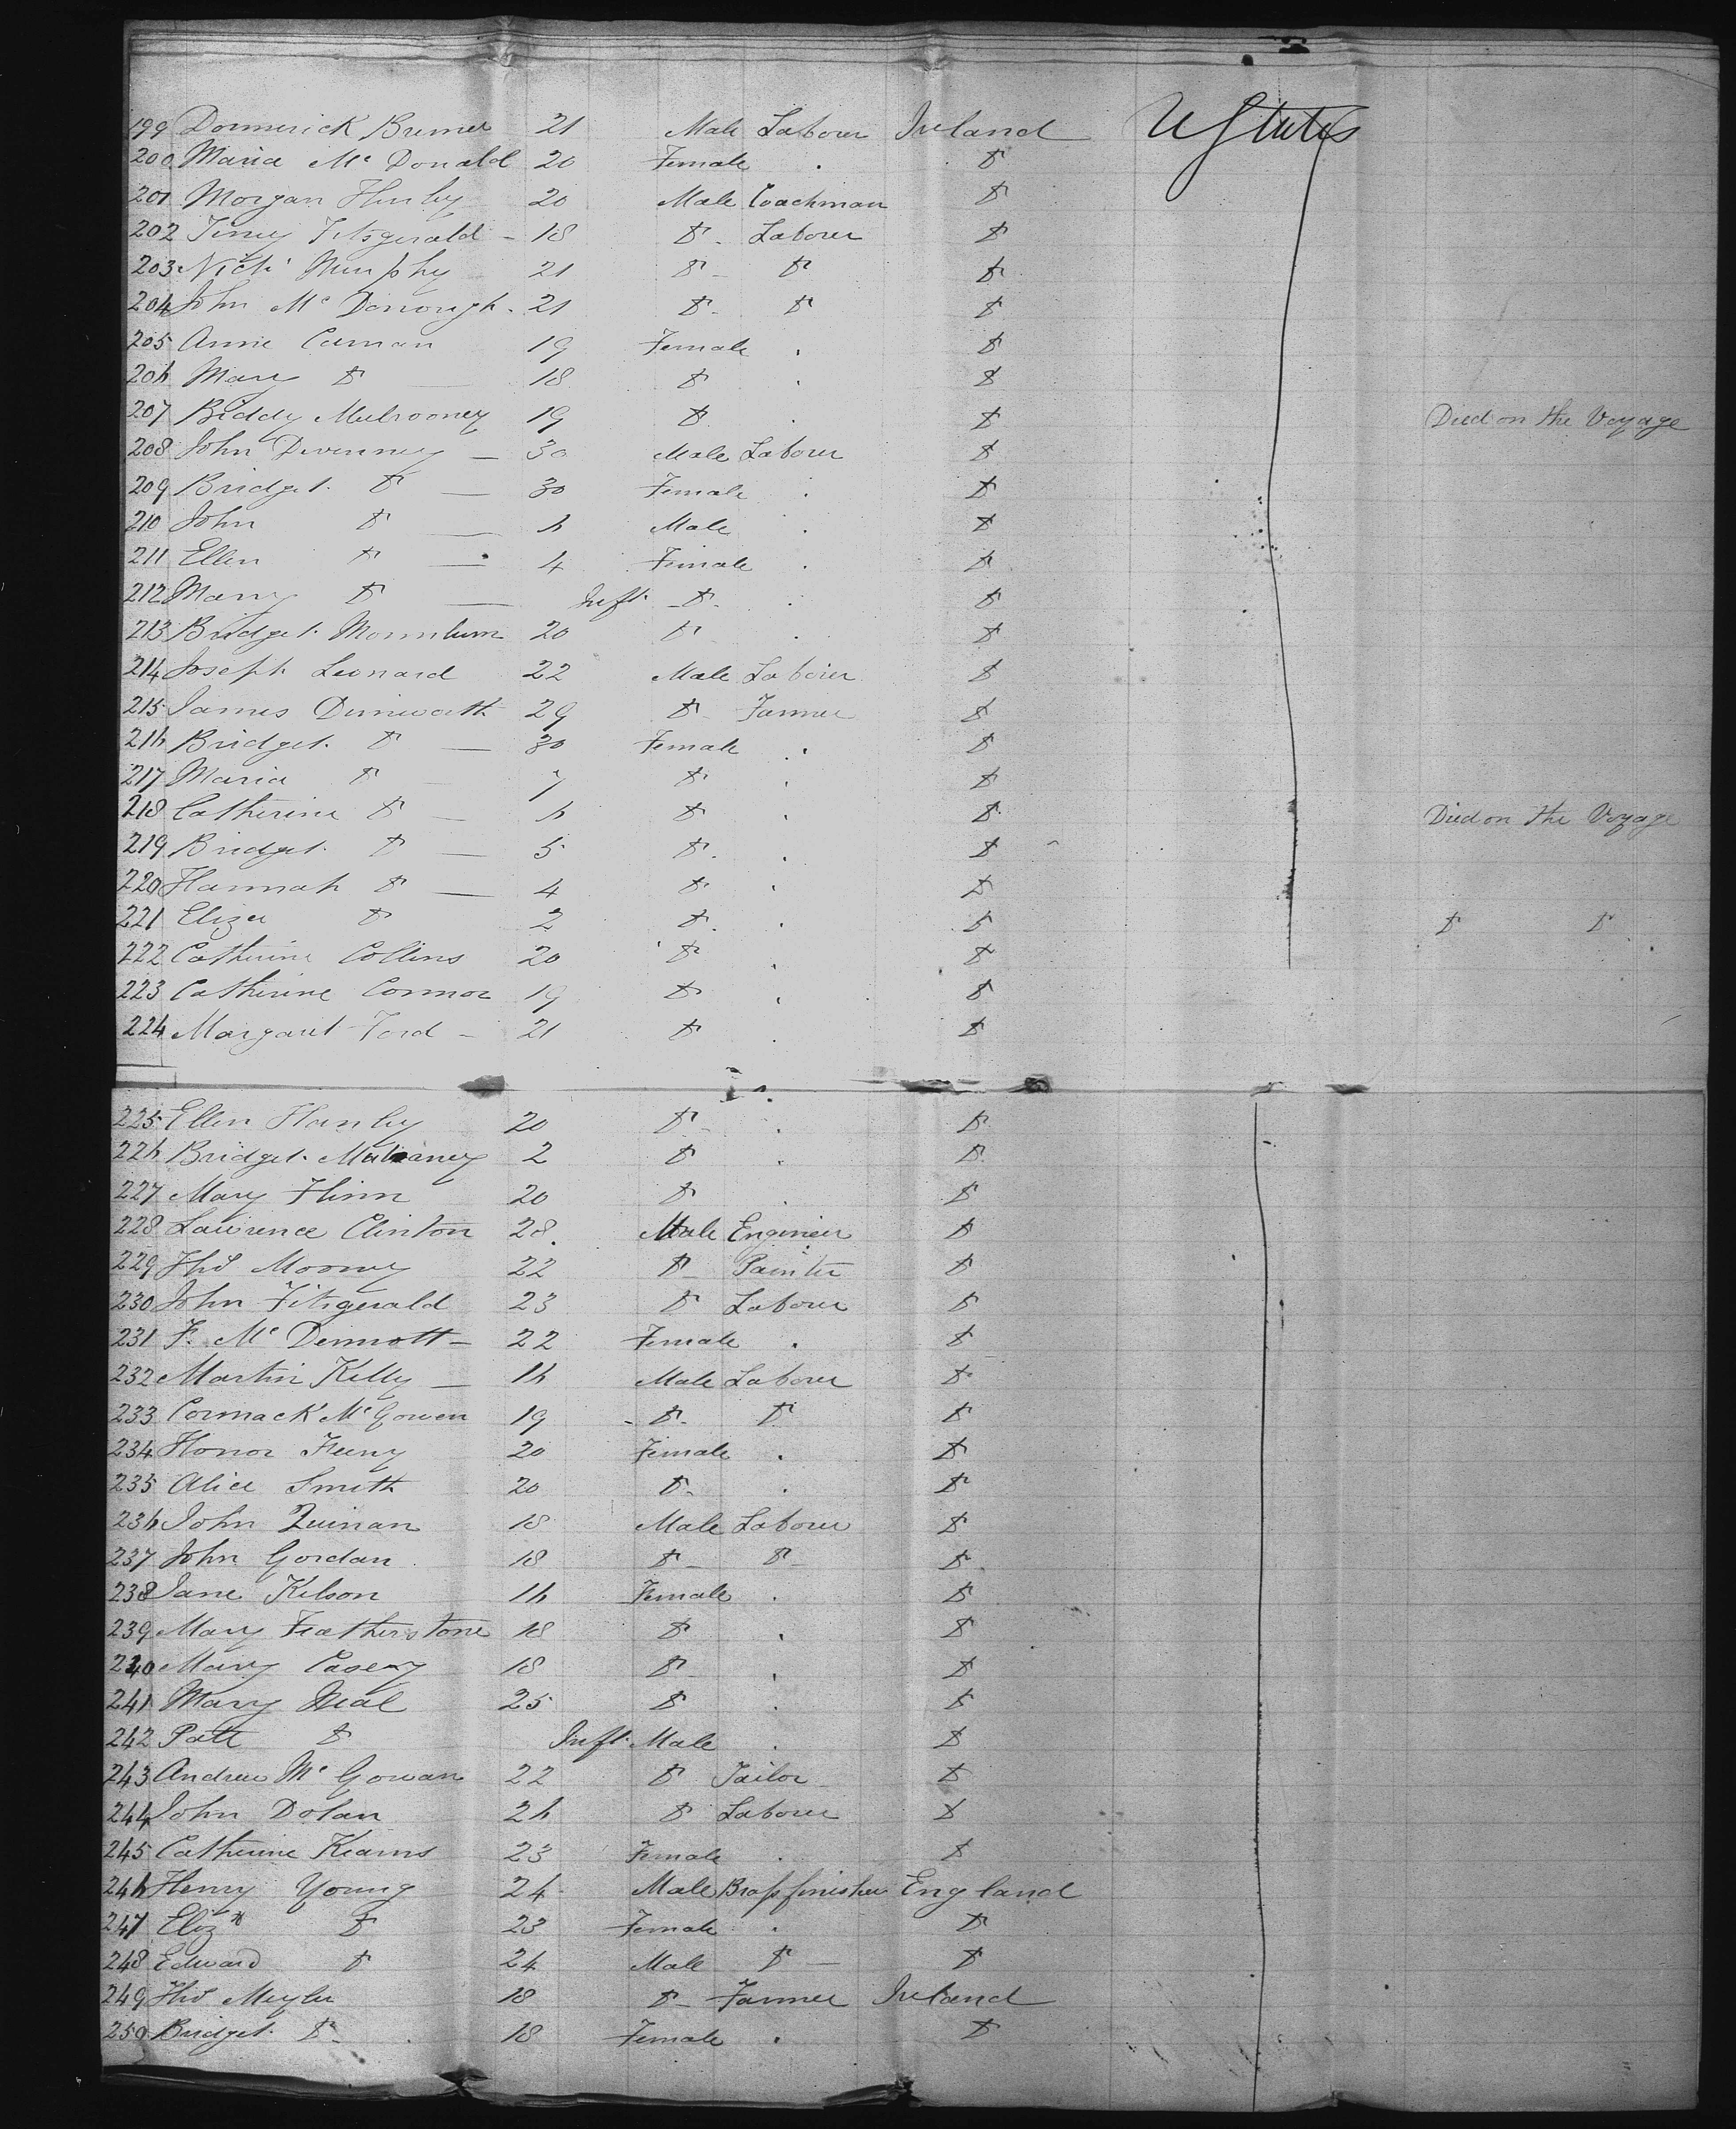 199 Dommerick Bremer 21 Male Laborer Ireland U States
200 Maria Mc Donald 20 Female . Do
201 Morgan Henley 20 Male Coachman Do
202 Jerrey Fitzgerald - 18 Do - Laborer Do
203 Nich Murphy 21 Do - Do Do
204 John Mc Donough . 21 Do - Do Do
205 Anne Curran 19 Female . Do
206 Mary Do — 18 Do . Do
207 Biddy Mulrooney 19 Do . Do Died on the Voyage
208 John Devenney — 30 Male Laborer Do
209 Bridget Do — 30 Female . Do
210 John Do — 6 Male . Do
211 Ellen Do — 4 Female . Do
212 Mary Do — Inft Do . Do
213 Bridget 20 Do . Do
214 Joseph Leonard 22 Male Laborer Do
215 James Dunworth 29 Do - Farmer Do
216 Bridget Do — 30 Female . Do
217 Maria Do — 7 Do . Do
218 Catherine Do — 6 Do . Do Died on the Voyage
219 Bridget Do — 5 Do . Do
220 Hannah Do — 4 Do . Do
221 Eliza Do 2 Do . Do Do Do
222 Catherine Collins 20 Do . Do
223 Catherine Connor 19 Do . Do
224 Margaret Ford - 21 Do . Do
225 Ellen Hanley 20 Do - . Do
226 Bridget 2 Do . Do
227 Mary Flinn 20 Do . Do
228 Lawrence Clinton 28 Male Engineer Do
229 Thos Mooney 22 Do - Painter Do
230 John Fitzgerald 23 Do Laborer Do
231 F. Mc Dermott - 22 Female . Do
232 Martin Kelly — 16 Male Laborer Do
233 Cormack Mc Gowen 19 Do Do Do
234 Honor Feeny 20 Female . Do
235 Alice Smith 20 Do . Do
236 John Quinan 18 Male Laborer Do
237 John Gordan 18 Do - Do - Do
238 Jane Kelson 16 Female . Do
239 Mary Featherstone 18 Do . Do
240 Mary Casey 18 Do . Do
241 Mary Neal 25 Do . Do
242 Patt Do Inft Male . Do
243 Andrew Mc Gowan 22 Do Tailor Do
244 John Dolan 26 Do Laborer Do
245 Catherine Kearns 23 Female . Do
246 Henry Young 24 Male Brassfinisher England
247 Elizth Do 23 Female . Do
248 Edward Do 24 Male Do — Do
249 Thos Meyler 18 Do - Farmer Ireland
250 Bridget Do - 18 Female . Do